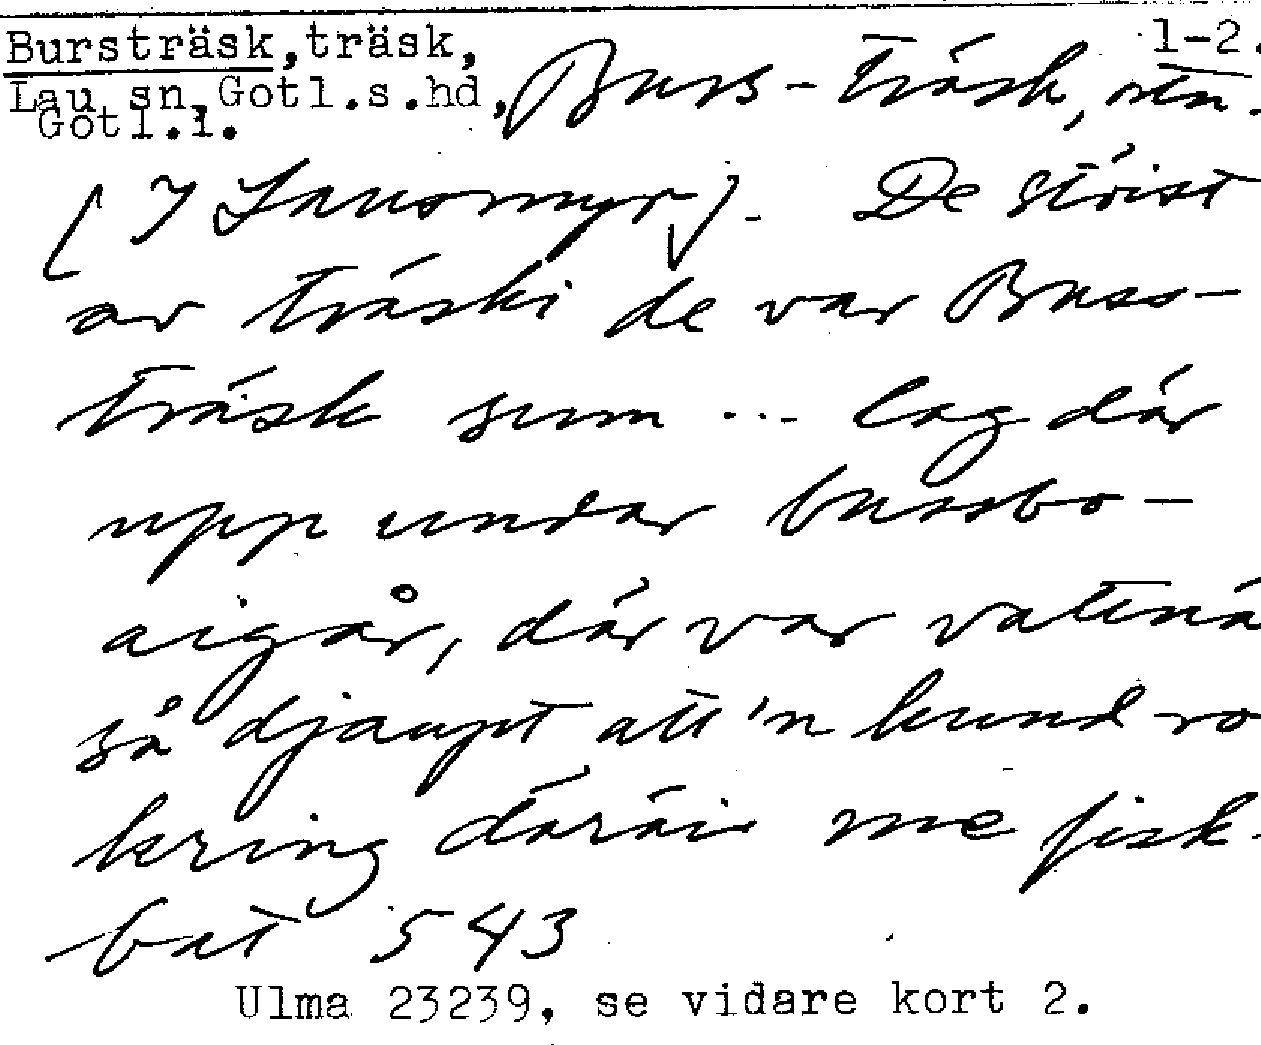 Bursträsk, träsk, 1-2.
Lau sn, Gotl.s.hd,
Gotl.l.
Burs-träsk, otn.
[I Lausmyr]. De störst
av träski de var Buss-
träsk sum ... lag där
upp undar bussbo-
aigår, där var vattnä
så djaupt att 'n kund ro
kring däräi me fisk-
bat 543
Ulma 23239, se vidare kort 2.